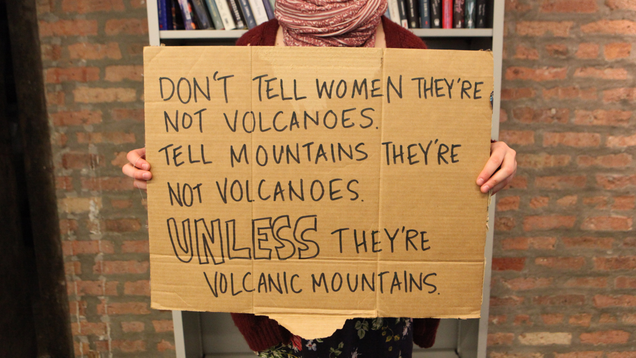 DON'T TELL WOMEN THEY'RE
NOT VOLCANOES.
TELL MOUNTAINS THEY'RE
NOT VOLCANOES.
UNLESS THEY'RE
VOLCANIC MOUNTAINS.